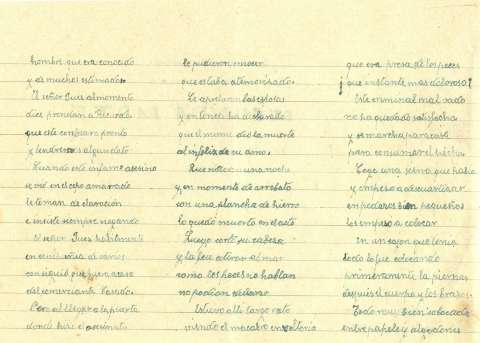 hombre que era conocido
y de muchos estimados
El señor Jues al momento
dice prendan a Ricardo
que este confesara pronto
y tendremos algun dato
Cuando este infame asesino
se vió en el cepo amarrado
le toman declaración
e insiste siempre negando
El señor Jues habilmente
en
consiguió que
del comerciante Pasado
Pero al llegar a la puerta
donde hizo el asesinato
le pudieron conocer
que estaba atemorizado
Le apretaron las esposas
y entonces ha declarado
que el mismo dió la muerte
al infeliz de su amo
Que entró una noche
y en momento de arrebato
con una plancha de hierro
lo quedó muerto en el acto
Luego cortó su cabeza
y la fue a tirar al mar
como los peces no hablan
no podian declarar
Estuvo alli largo rato
viendo el macabro
que era presa de los peces
¡que instante mas doloroso!
Este criminal malvado
no ha quedado satisfecho
y se marcha para casa
para consumar el hecho
Coge una sierra que habia
y empieso a descuartizar
en pedazos bien pequeños
los empeso a colocar
En un cajon que tenia
todo lo fue colocando
primeramente la piernas
despues el cuerpo y los brazos
Todo muy bien colocado
entre papeles y algodones